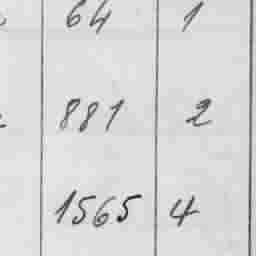 64 1
881 2
1565 4